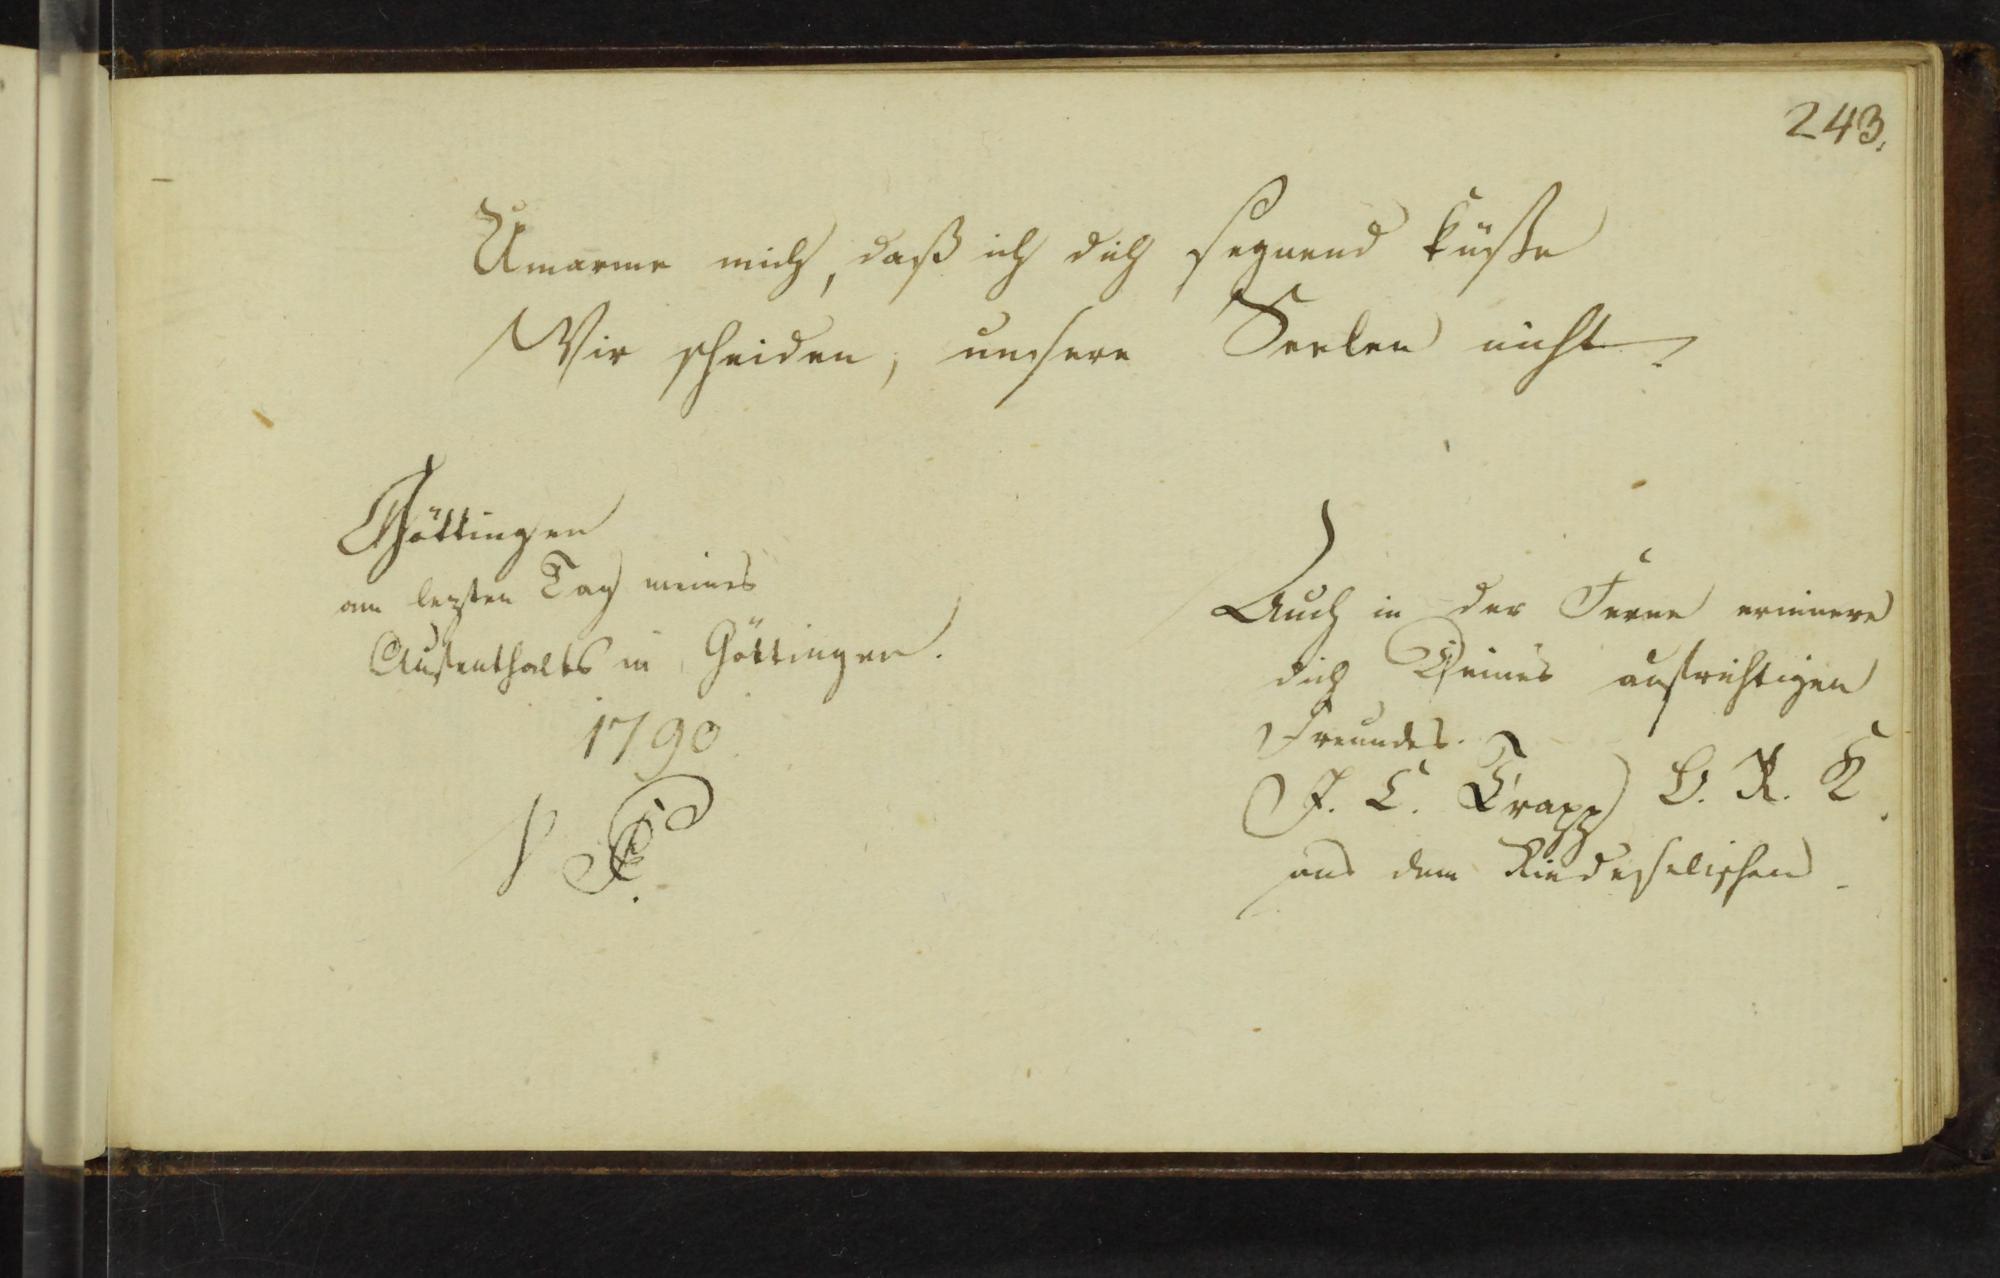 243.
Umarme mich, daß ich dich segnend küße
Wir scheiden, unsere Seelen nicht.
Göttingen
am lezten Tag meines
Aufenthalts in Göttingen.
1790
Auch in der Ferne erinnere
dich Deines aufrichtigen
Freundes.
F. C. Trapp B. R. K.
aus dem Riedeselischen